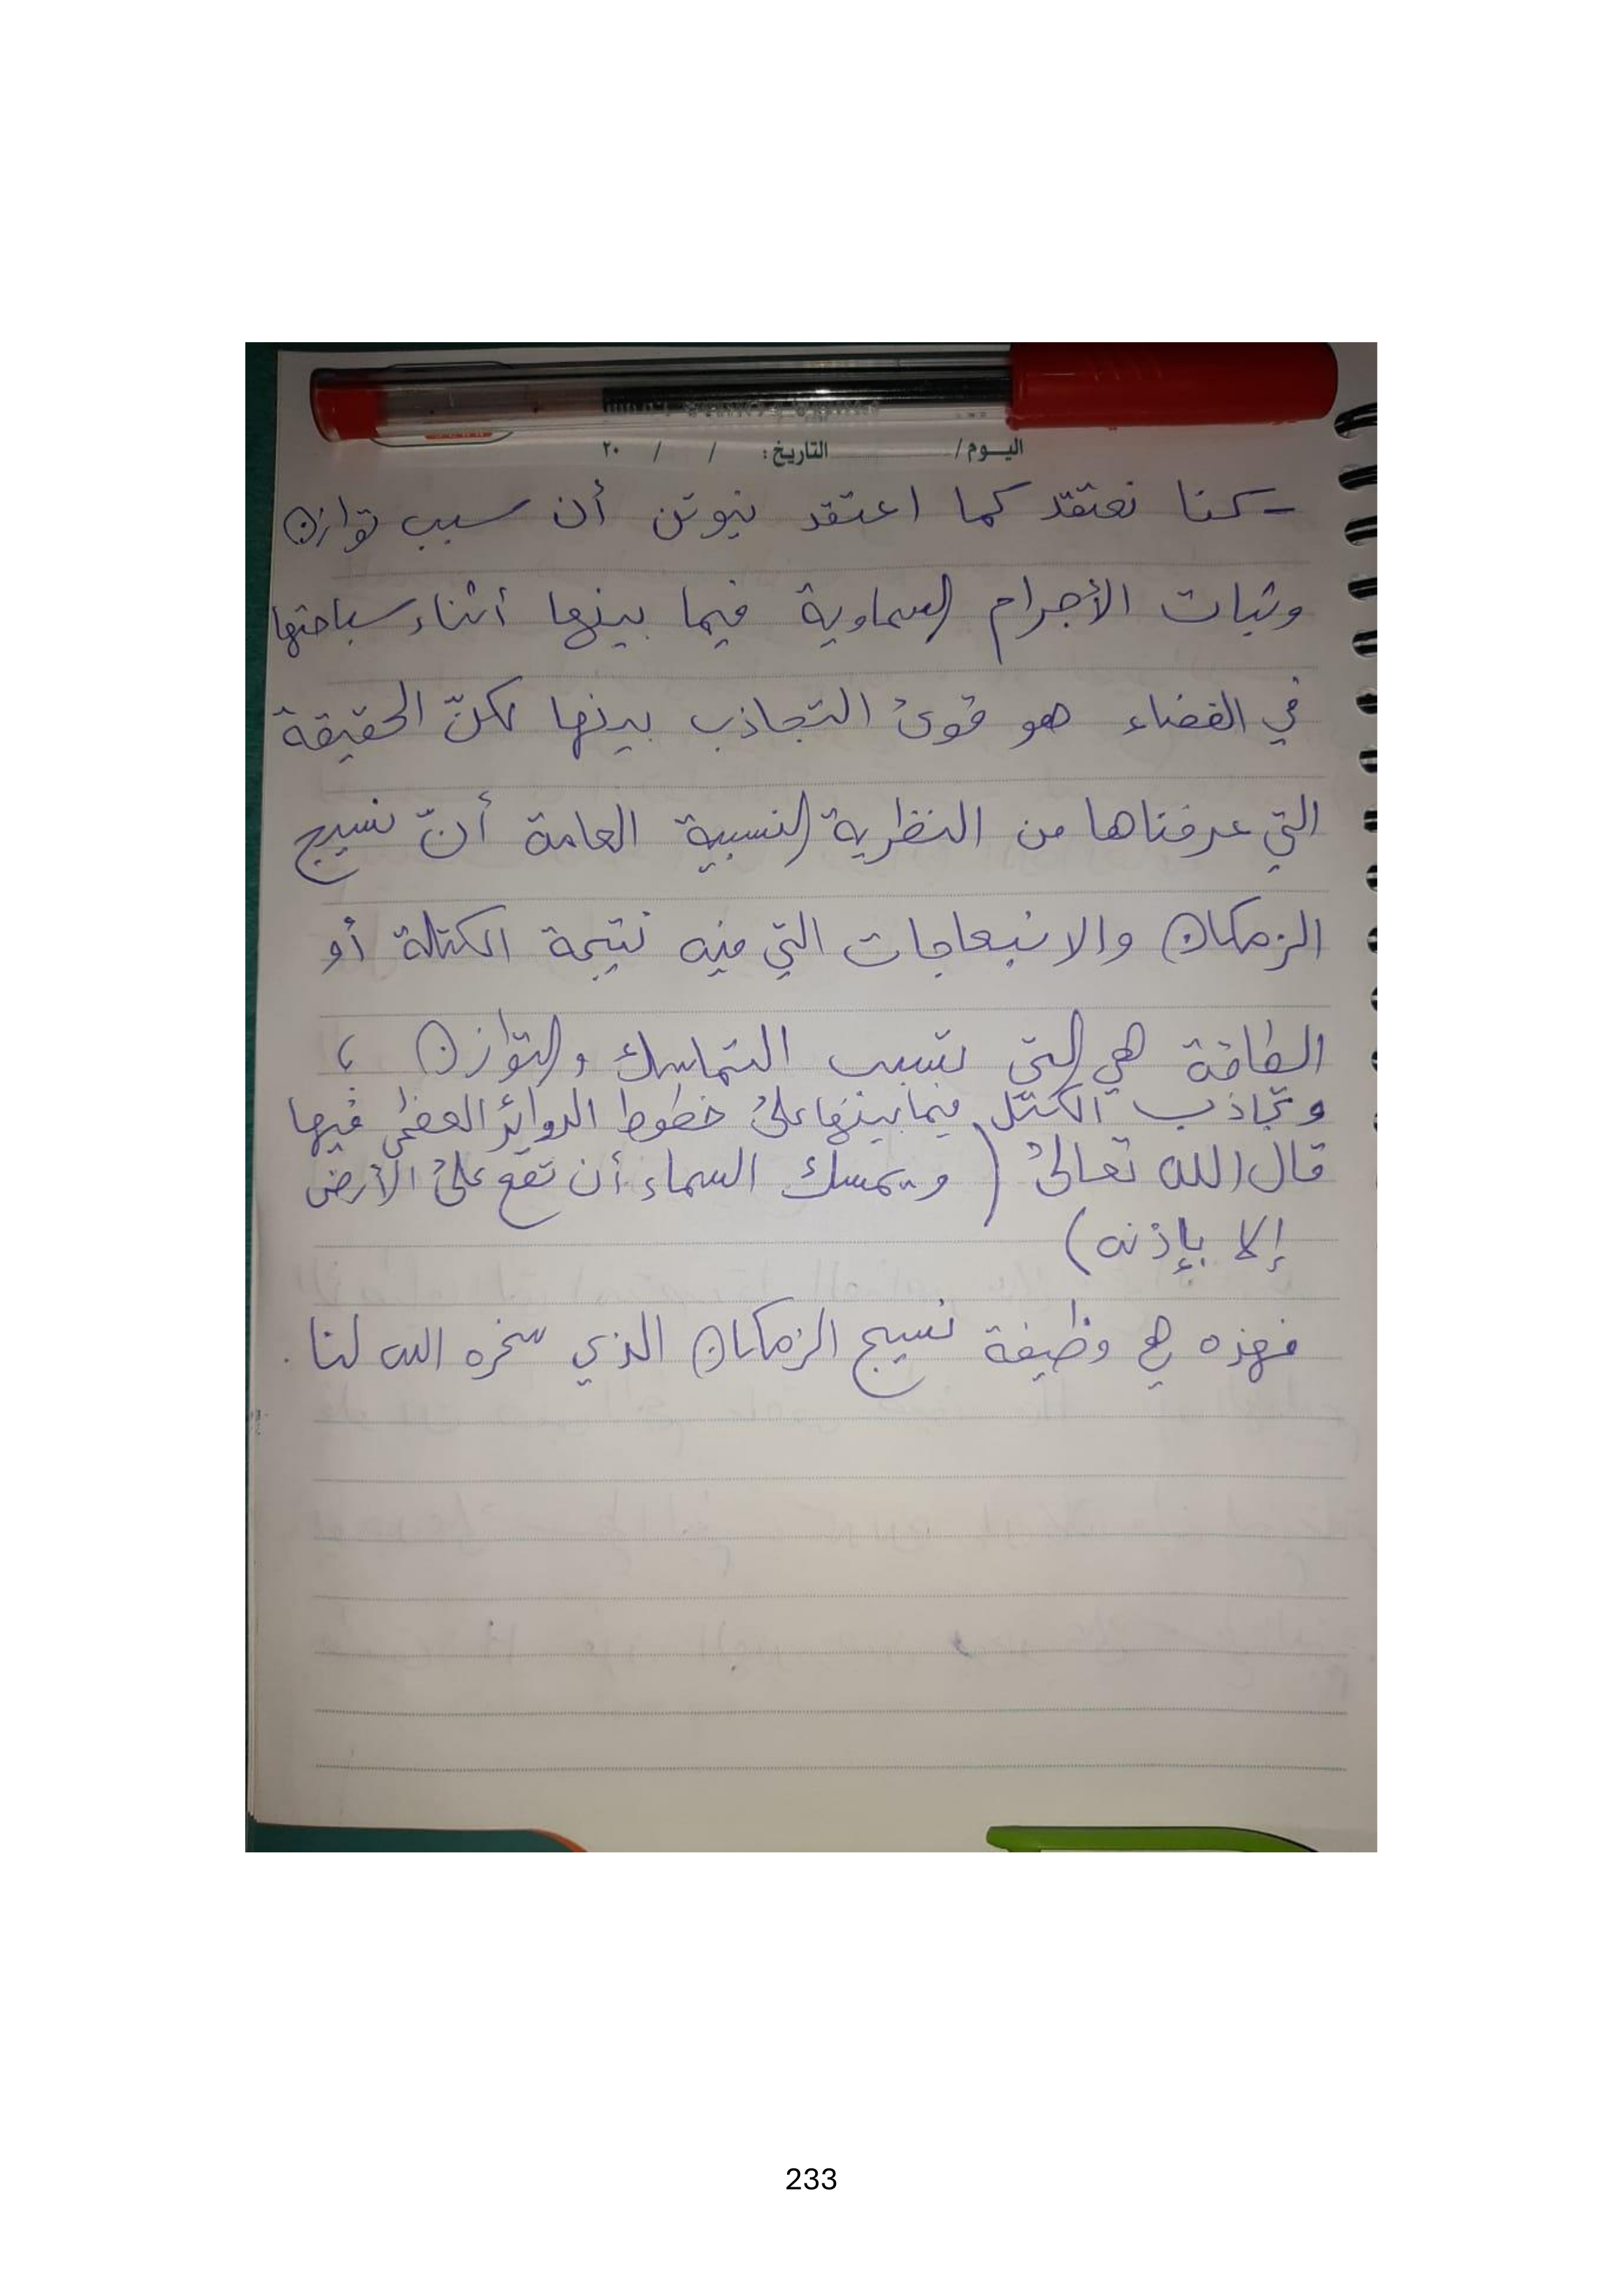 اليوم/ التاريخ: / / ٢٠
- كنا نعتقد كما اعتقد نيوتن أن سبب توازن
وثبات الأجرام السماوية فيما بينها أثناء سباحتها
في الفضاء هو قوى التجاذب بينها لكنّ الحقيقة
التي عرفناها من النظرية النسبية العامة أنّ نسيج
الزمكان والانبعاجات التي فيه نتيجة الكتلة أو
الطاقة هي التي تسبب التماسك والتوازن ؛
وتجاذب الكتل فيما بينها على خطوط الدوائر العظمى فيها
قال الله تعالى ( ويمسك السماء أن تقع على الأرض
إلا بإذنه)
فهذه هي وظيفة نسيج الزمكان الذي سخره الله لنا .
233